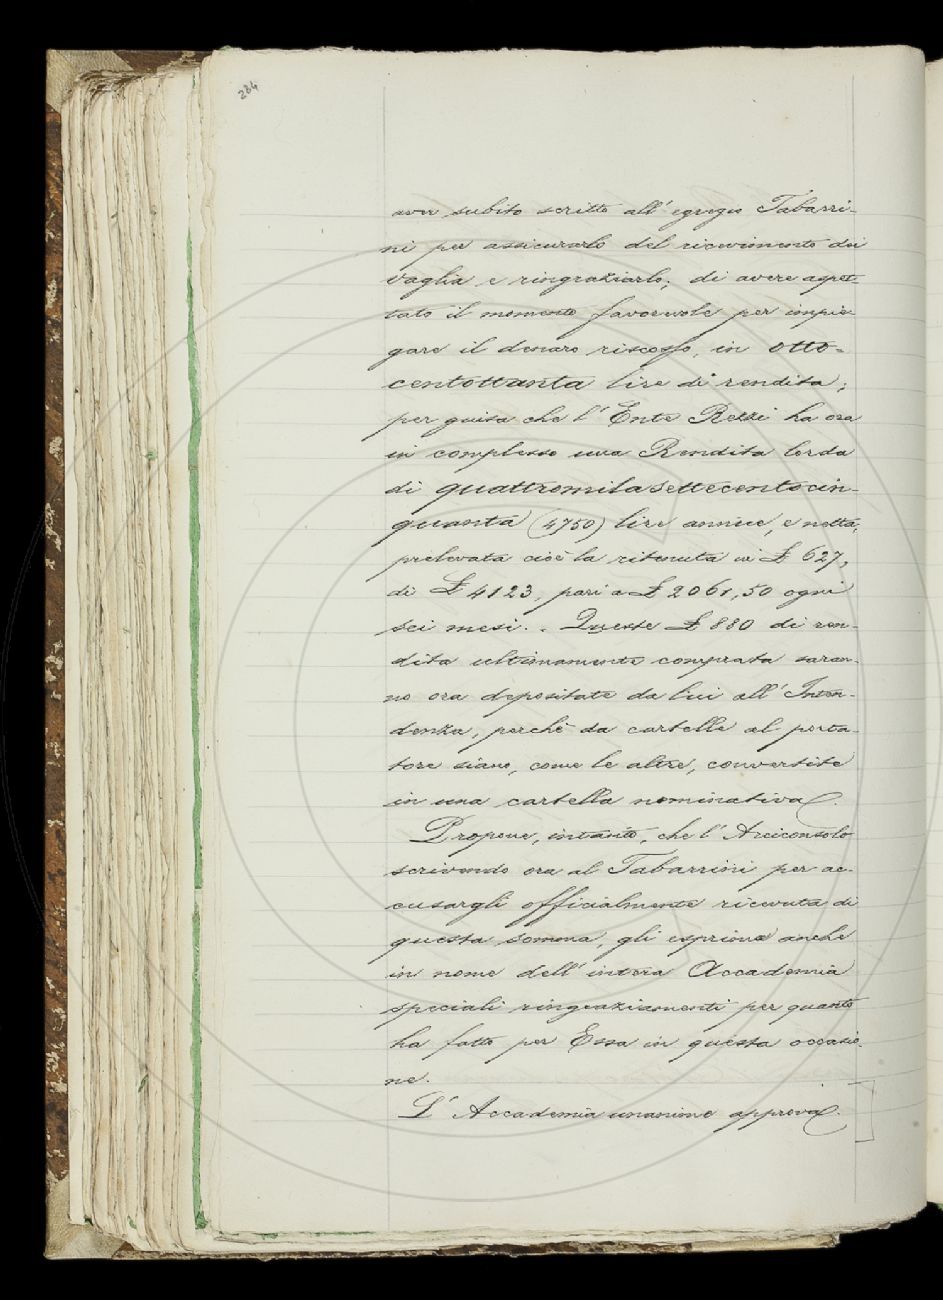 284
aver subito scritto all' egregio Tabarri-
ni per assicurarlo del ricevimento dei
vaglia e ringraziarlo; di avere aspet-
tato il momento favorevole per impie-
gare il denaro riscosso, in otto-
centottanta lire di rendita;
per guisa che l' Ente Rezzi ha ora
in complesso una Rendita lorda
di quattromilasettecentocin-
quanta (4750) lire annue, e netta,
prelevata cioè la ritenuta in £ 627,
di £ 4123, pari a £ 2061,50 ogni
sei mesi. - Queste £ 880 di ren-
dita ultimamente comprata saran-
no ora depositate da lui all' Inten-
denza, perchè da cartelle al porta-
tore siano, come le altre, convertite
in una cartella nominativa.
Propone, intanto, che l' Arciconsolo
scrivendo ora al Tabarrini per ac-
cusargli officialmente ricevuta di
questa somma, gli esprima anche
in nome dell' intera Accademia
speciali ringraziamenti per quanto
ha fatto per Essa in questa occasio-
ne.
L' Accademia unanime approva.